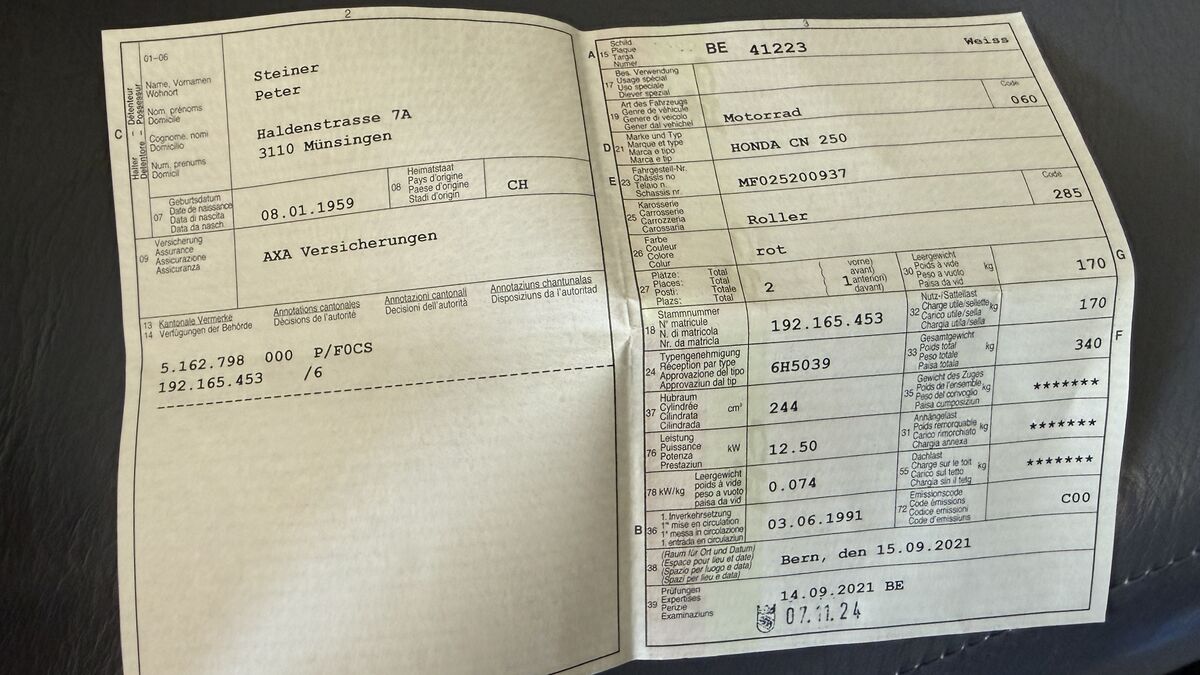 2
01-06
C
Halter – Détenteur
Detentore – Possessur
Name, Vornamen
Wohnort
Nom, prénoms
Domicile
Cognome, nomi
Domicilio
Num, prenums
Domicil
Steiner
Peter
Haldenstrasse 7A
3110 Münsingen
07
Geburtsdatum
Date de naissance
Data di nascita
Data da nasch.
08.01.1959
08
Heimatstaat
Pays d'origine
Paese d'origine
Stadi d'origin
CH
09
Versicherung
Assurance
Assicurazione
Assicuranza
AXA Versicherungen
13 Kantonale Vermerke
14 Verfügungen der Behörde
Annotations cantonales
Décisions de l'autorité
Annotazioni cantonali
Decisioni dell'autorità
Annotaziuns chantunalas
Disposiziuns da l'autoritad
5.162.798 000 P/F0CS
192.165.453 /6
3
A 15
Schild
Plaque
Targa
Numer
BE 41223 Weiss
17
Bes. Verwendung
Usage spécial
Uso speciale
Diever spezial
19
Art des Fahrzeugs
Genre de véhicule
Genere di veicolo
Gener dal vehichel
Motorrad
Code
060
D 21
Marke und Typ
Marque et type
Marca e tipo
Marca e tip
HONDA CN 250
E 23
Fahrgestell-Nr.
Châssis no
Telaio n.
Schassis nr.
MF025200937
25
Karosserie
Carrosserie
Carrozzeria
Carossaria
Roller
Code
285
26
Farbe
Couleur
Colore
Colur
rot
27
Plätze: Total
Places: Total
Posti: Totale
Plazs: Total
2
vorne)
avant)
anteriori)
davant)
1
G
30
Leergewicht
Poids à vide
Peso a vuoto
Paisa da vid
kg
170
18
Stammnummer
N° matricule
N. di matricola
Nr. da matricla
192.165.453
32
Nutz-/Sattellast
Charge utile/sellette
Carico utile/sella
Chargia utila/sella
kg
170
24
Typengenehmigung
Réception par type
Approvazione del tipo
Approvaziun dal tip
6H5039
F
33
Gesamtgewicht
Poids total
Peso totale
Paisa totala
kg
340
37
Hubraum
Cylindrée
Cilindrata
Cilindrada
cm³
244
35
Gewicht des Zuges
Poids de l'ensemble
Peso del convoglio
Paisa cumposiziun
kg
*******
76
Leistung
Puissance
Potenza
Prestaziun
kW
12.50
31
Anhängelast
Poids remorquable
Carico rimorchiato
Chargia annexa
kg
*******
78 kW/kg
Leergewicht
poids à vide
peso a vuoto
paisa da vid
0.074
55
Dachlast
Charge sur le toit
Carico sul tetto
Chargia sin il tetg
kg
*******
B 36
1. Inverkehrsetzung
1re mise en circulation
1a messa in circolazione
1. entrada en circulaziun
03.06.1991
72
Emissionscode
Code émissions
Codice emissioni
Code d'emissiuns
C00
38
(Raum für Ort und Datum)
(Espace pour lieu et date)
(Spazio per luogo e data)
(Spazi per lieu e data)
Bern, den 15.09.2021
39
Prüfungen
Expertises
Perizie
Examinaziuns
14.09.2021 BE
07.11.24